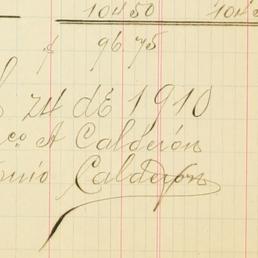 104 50 104 5
$ 96 75
l 24 de 1910
co A Calderón
onio Calderón